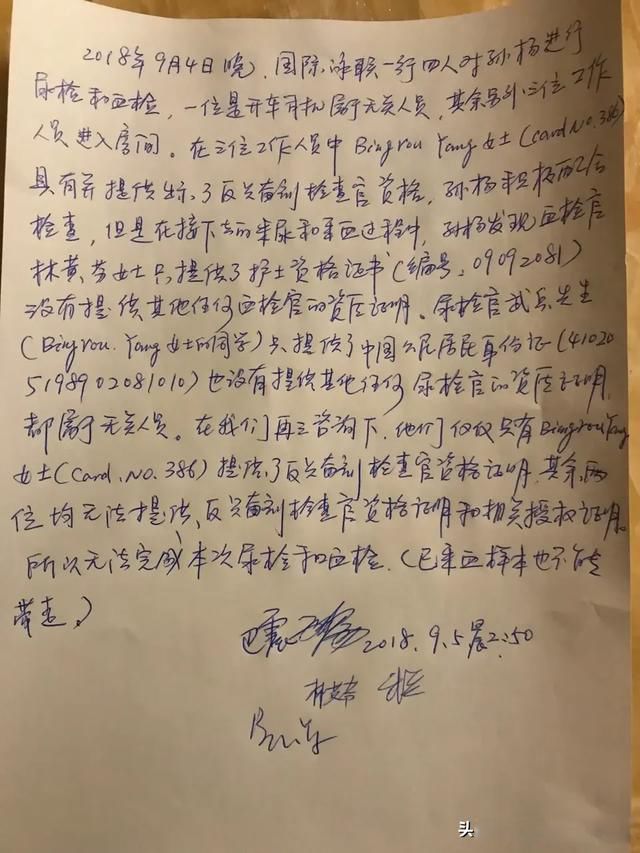 2018年9月4日晚，国际泳联一行四人对孙杨进行
尿检和血检，一位是开车司机属于无关人员，其余另外三位工作
人员进入房间。在三位工作人员中Bingrou Yang女士(Card.No.386)
具有并提供出示了反兴奋剂检查官资格，孙杨积极配合
检查，但是在接下去的采尿和采血过程中，孙杨发现血检官
林黄芬女士只提供了护士资格证书(编号:09092081)
没有提供其他任何血检官的资质证明。尿检官 先生
(Bingrou.Yang女士的同学)只提供了中国公民居民身份证(410205198902081010)也没有提供其他任何尿检官的资质证明，
都属于无关人员。在我们再三咨询下，他们仅仅只有Bingrou Yang
女士(Card.No.386)提供了反兴奋剂检查官资格证明，其余两
位均无法提供反兴奋剂检查官资格证明和相关授权证明。
所以无法完成本次尿检和血检.(已采血样本也不能
带走。)
2018.9.5晨2:50
头